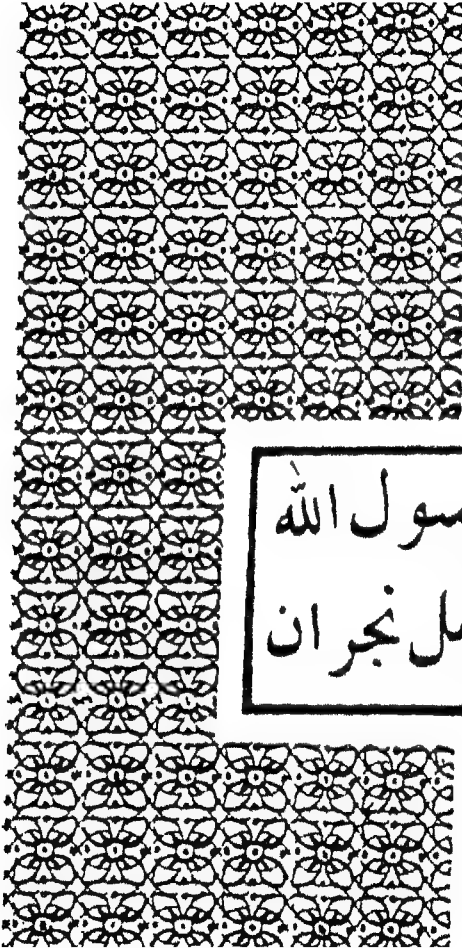 سول الله
ل نجران